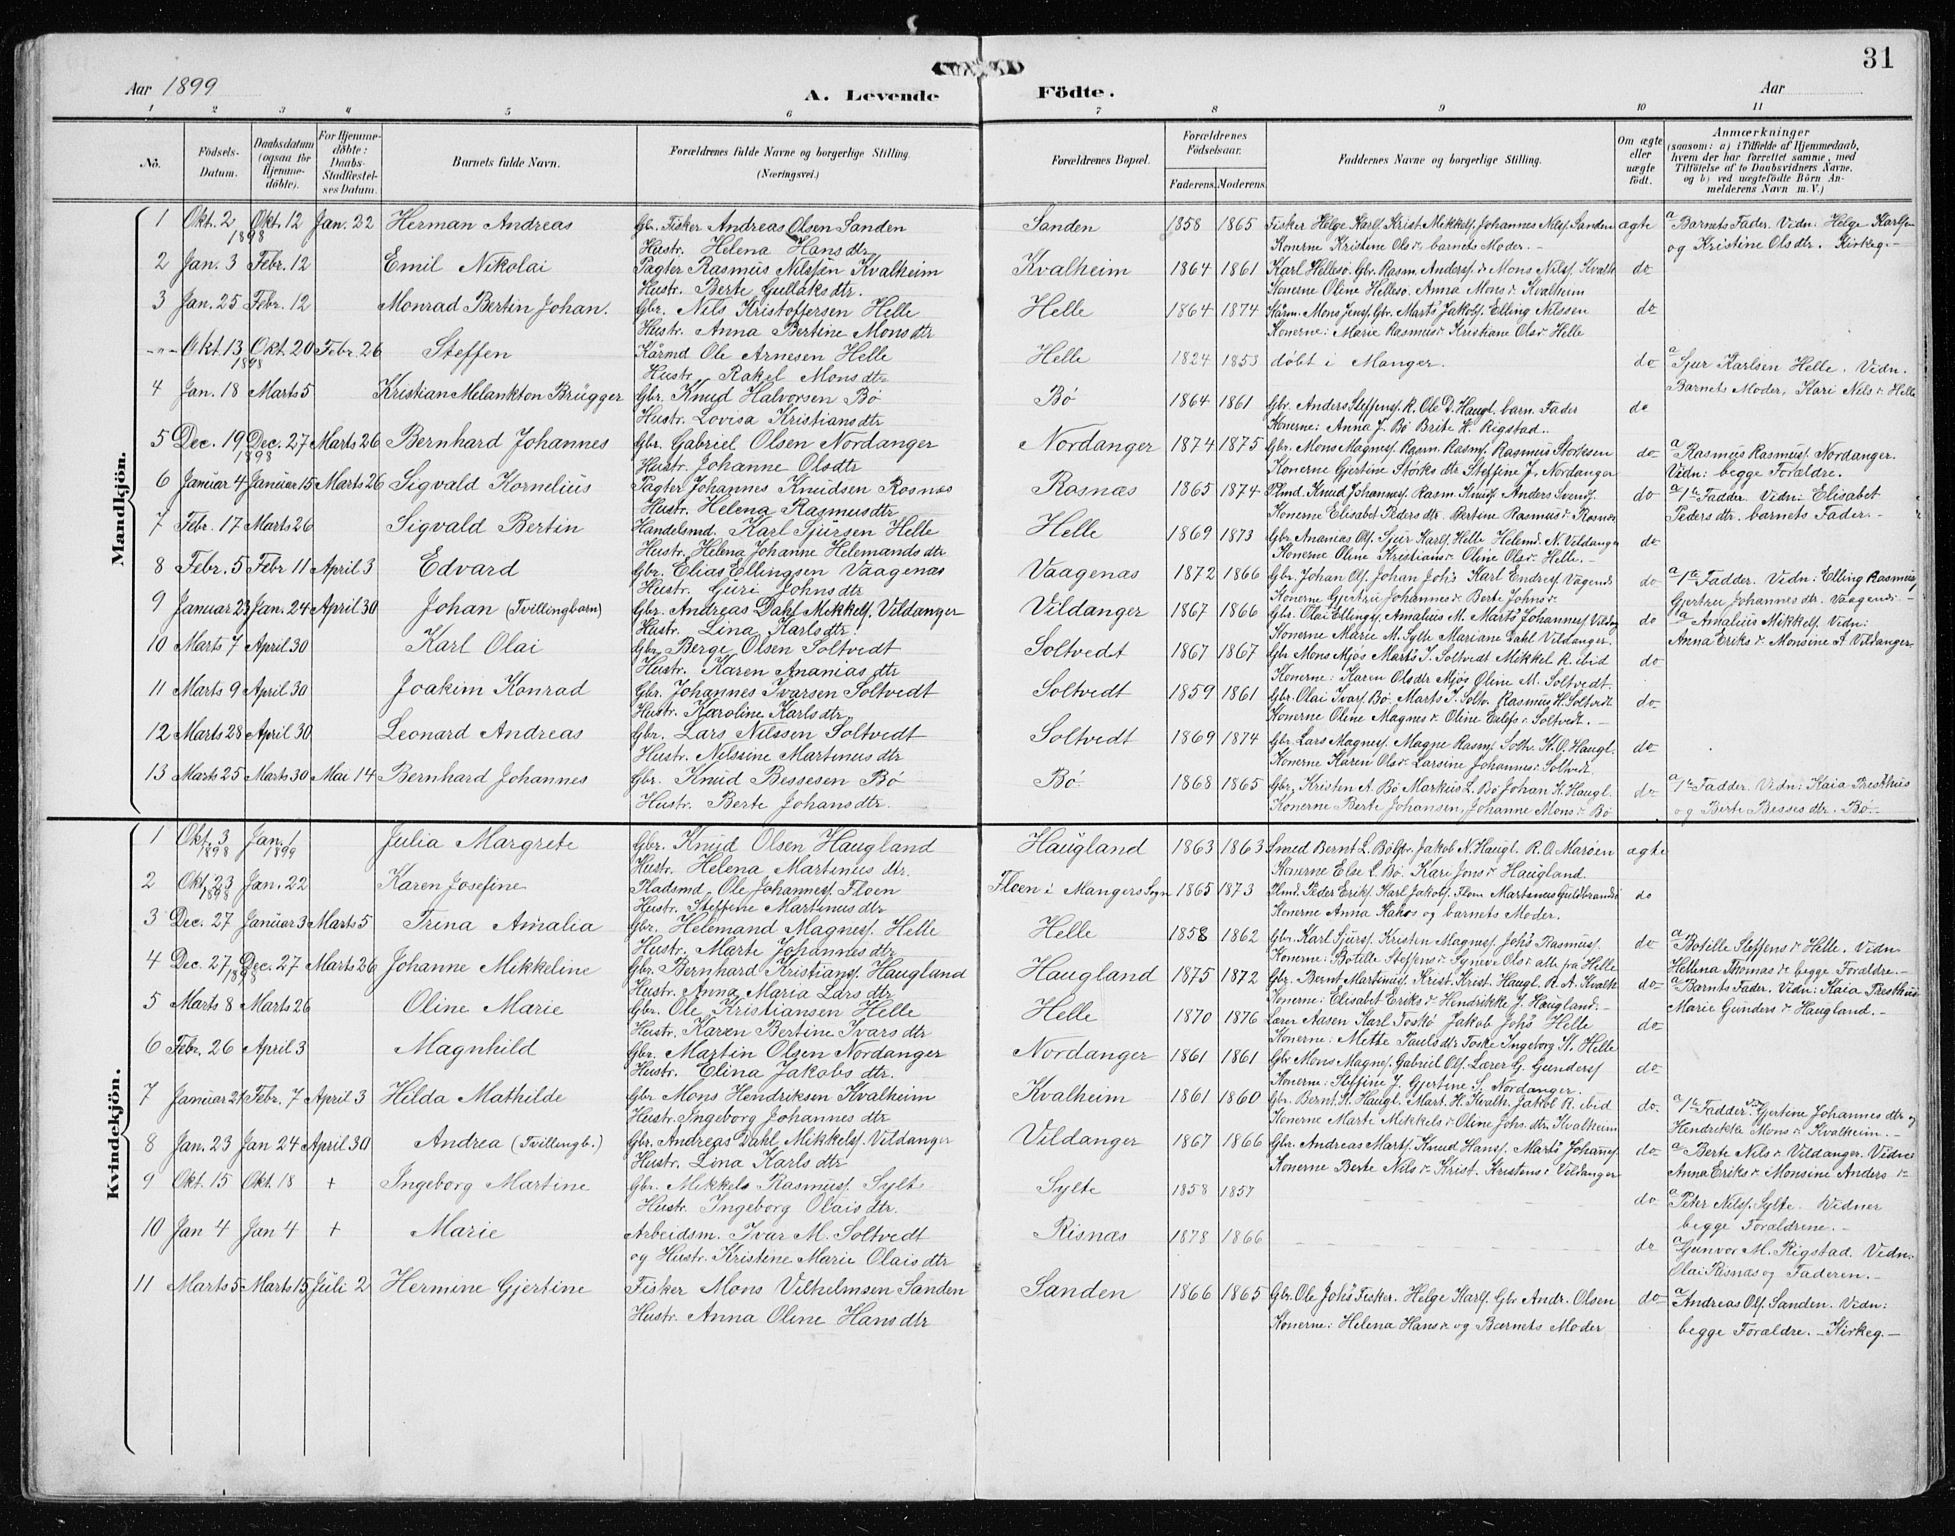 31
Aar 1899
A. Levende Födte.
Aar
1 2 3 4 5 6 7 8 9 10 11
No.
Födsels-Datum.
Daabsdatum (ogsaa for Hjemme-döbte).
For Hjemme-döbte: Daabs-Stadfæstel-ses Datum.
Barnets fulde Navn.
Forældrenes fulde Navne og borgerlige Stilling (Næringsvei.)
Forældrenes Bopæl.
Forældrenes Födselsaar.
Faderens. Moderens.
Faddernes Navne og borgerlige Stilling.
Om ægte eller uægte födt.
Anmærkninger
(saasom: a) i Tilfælde af Hjemmedaab, hvem der har forrettet samme, med Tilföielse af to Daabsvidners Navne. og b) ved uægtefödte Börn An-melderens Navn m. V.)
Mandkjön.
1 Okt. 2 1898 Okt. 12 Jan. 22 Herman Andreas Gbr. Fisker Andreas Olsen Sanden Sanden 1858 1865 Fisker Helge Karls. Krist. Mikkels. Johannes Nils. Sanden ægte a Barnets Fader. Vidn: Helge Karlsen
Hustr. Helena Hansdtr. Konerne Kristine Olsdr. barnets Moder. og Kristine Olsdtr. Kirkeg.
2 Jan. 3 Febr. 12 Emil Nikolai Pagter Rasmus Nilssen Kvalheim Kvalheim 1864 1861 Karl Hellesö. Gbr. Rasm. Anders. Mons Nils. Kvalh. do
Hustr. Berte Gullaksdtr. Konerne Oline Hellesö. Anna Mons Kvalheim
3 Jan. 25 Febr. 12 Monrad Bertin Johan. Gbr. Nils Kristoffersen Helle Helle 1864 1874 Mons Jens. Gbr. Marts Jakobs. Elling Nilssen do
Hustr. Anna Bertine Monsdtr Konerne: Marie Rasmus Kristiane Ols Helle
-"- Okt. 13 1898 Okt. 20 Febr. 26 Steffen Kårmd Ole Arnesen Helle Helle 1824 1853 döbt i Manger. do a Sjur Karlsen Helle. Vidn.
Hustr. Rakel Monsdtr Barnets Moder, Kari Nils Helle
4 Jan. 18 Marts 5 Kristian Melankton Brügger Gbr. Knud Halvorsen Bö Bö 1864 1861 Gbr. Anders Steffens. K. Ole D. Haugl. barn. Fader do
Hustr. Lovisa Kristiansdtr Konerne: Anna J. Bö Brite K. Rigstad.
5 Dec. 19 Dec. 27 1898 Marts 26 Bernhard Johannes Gbr. Gabriel Olsen Nordanger Nordanger 1874 1875 Gbr. Mons Magnes. Rasm. Rasms. Rasmus Storksen do a Rasmus Rasmus. Nordanger.
Hustr. Johanne Olsdtr Konerne Gjertine Störks dtr Steffine J. Nordanger Vidn: begge Forældre.
6 Januar 4 Januar 15 Marts 26 Sigvald Kornelius Pagter Johannes Knudsen Rosnæs Rasnæs 1865 1874 Plmd. Knud Johannes. Rasm. Knuds. Anders Svends. do a 1ste Fadder. Vidn: Elisabet
Hustr. Helena Rasmusdtr Konerne Elisabet Pedersdtr. Bertine Rasmus Rosnæs Pedersdtr. barnets Fader.
7 Febr. 17 Marts 26 Sigvald Bertin Handelsmd. Karl Sjursen Helle Helle 1869 1873 Gbr. Ananias Ols. Sjur Karls. Helle Helemd. N. Vildanger do
Hustr. Helena Johanne Helemandsdtr Konerne Oline Kristians Oline Ols Helle.
8 Febr. 5 Febr 11 April 3 Edvard Gbr. Elias Ellingsen Vaagenæs Vaagenæs 1872 1866 Gbr. Johan Ols. Johan Johs Karl Endres. Vågenæs do a 1ste Fadder. Vidn: Elling Rasmus
Hustr. Guri Johnsdtr Konerne Gjertru Johannes Berte Johns Gjertru Johannesdtr. Vaagenæs
9 Januar 23 Jan. 24 April 30 Johan (Tvillingbarn) Gbr. Andreas Dahl Mikkels. Vildanger Vildanger 1867 1866 Gbr. Olai Ellings, Amalius M. Marts Johannes Vildang do a Amalius Mikkels. Vidn:
Hustr. Lina Karlsdtr. Konerne Marie M. Sylte Mariane Dahl Vildanger. Anna Eriks Monsine A Vildanger
10 Marts 7 April 30 Karl Olai Gbr. Berge Olsen Soltvedt Soltvedt 1867 1867 Gbr Mons Mjös Marts J. Soltvedt Mikkel R. ibid do
Hustr. Karen Ananiasdtr Konerne: Karen Olsdtr Mjös Oline M. Soltvedt.
11 Marts 9 April 30 Joakim Konrad Gbr. Johannes Ivarsen Soltvedt Soltvedt 1859 1861 Gbr. Olai Ivars. Bö. Marts J. Soltv. Rasmus H. Soltvedt do
Hustr. Karoline Karlsdtr. Konerne Oline Magnes Oline Eilefs Soltvedt.
12 Marts 28 April 30 Leonard Andreas Gbr. Lars Nilssen Soltvedt Soltvedt 1869 1874 Gbr. Lars Magnes. Magne Rasm. Soltv. K. O. Haugl. do
Hustr. Nilssine Martinusdtr Konerne Karen Ols Larsine Johannes Soltvedt
13 Marts 25 Marts 30 Mai 14 Bernhard Johannes Gbr. Knud Bessesen Bö Bö 1868 1865 Gbr. Kristen A. Bö Markus L. Bö Johan K. Haugl. do a 1ste Fadder. Vidn: Kaia Presthus
Hustr. Berte Johansdtr. Konerne Berte Johansen, Johanne Mons Bö og Berte Bessesdtr. Bö.
Kvindekjön.
1 Okt. 3 1898 Jan. 1 1899 Julia Margrete Gbr. Knud Olsen Haugland Haugland 1863 1863 Smed Bernt L. Bö Jakob N. Haugl. R. O. Marøen ægte
Hustr. Helena Martinus dtr. Konerne Else L. Bö. Kari Jons Haugland
2 Okt. 23 1898 Jan. 22 Karen Josefine Pladsmd Ole Johannes. Floen Floen i Mangers Sogn 1865 1873 Plmd. Peder Eriks. Karl Jakobs. Floen Martinus Guldbrands do
Hustr. Steffine Martinusdtr Konerne Anna og barnets Moder.
3 Dec. 27 Januar 3 Marts 5 Trina Amalia Gbr. Helemand Magnes. Helle Helle 1858 1862 Gbr. Karl Sjurs. Kristen Magnes. Johs Rasmus. do a Botille Steffens Helle. Vidn
Hustr. Marte Johannesdtr Konerne: Botille Steffens Synneve Ols alle fra Helle Hellena Thomas begge Forældre.
4 Dec. 27 1898 Dec. 27 Marts 26 Johanne Mikkeline Gbr. Bernhard Kristians. Haugland Haugland 1875 1872 Gbr. Bernt Martinus. Krist. Krist. Haugl. R. A. Kvalh. do a Barnets Fader. Vidn: Kaia Presthus
Hustr. Anna Maria Larsdtr Konerne: Elisabet Eriks Hendrikke J. Haugland. Marie Gunders Haugland.
5 Marts 8 Marts 26 Oline Marie Gbr. Ole Kristiansen Helle Helle 1870 1876 Lærer Aasen Karl Toskö Jakob Johs Helle do
Hustr. Karen Bertine Ivarsdtr Konerne: Mette Paulsdtr Toske Ingeborg St. Helle
6 Febr. 26 April 3 Magnhild Gbr. Martin Olsen Nordanger Nordanger 1861 1861 Gbr Mons Magnes. Gabriel Ols. Lærer G. Gunders do
Hustr. Elina Jakobsdtr. Konerne: Steffine J. Gjertine S. Nordanger.
7 Januar 21 Febr. 7 April 3 Hilda Mathilde Gbr Mons Hendriksen Kvalheim Kvalheim 1861 1860 Gbr. Bernt K. Haugl. Mart. H. Kvalh. Jakob R. ibid do. a 1ste Fadder Gjertine Johannesdtr og
Hustr. Ingeborg Johannesdtr Konerne Marte Mikkels Oline Johs. dtr. Kvalheim Hendrikke Mons Kvalheim.
8 Jan. 23 Jan 24 April 30 Andrea (Tvillingb.) Gbr. Andreas Dahl Mikkels. Vildanger Vildanger 1867 1866 Gbr. Andreas Marts. Knud Hans. Marts Johannes. do a Berte Nils Vildanger. Vidne
Hustr. Lina Karlsdtr Konerne Berte Nils Krist. Kristens Vildanger Anna Eriks Monsine Anders
9 Okt. 15 Okt. 18 + Ingeborg Martine Gbr. Mikkels Rasmus. Sylte Sylte 1858 1857 do a Peter Nils. Sylte. Vidner
Hustr. Ingeborg Olaisdtr. begge Forældrene.
10 Jan 4 Jan 4 + Marie Arbeidsm. Ivar M. Soltvedt Risnæs 1878 1866 do a Gunvor M. Rigstad. Vidn:
og Hustr. Kristine Marie Olaisdtr Olai Risnæs og Faderen.
11 Marts 5 Marts 15 Juli 2 Hermine Gjertine Fisker Mons Vilhelmsen Sanden Sanden 1866 1865 Gbr. Ole Johs Fisker. Helge Karls. Gbr Andr. Olsen do a Andreas Ols. Sanden. Vidn:
Hustr. Anna Oline Hansdtr Konerne: Helena Hans og Barnets Moder begge Forældre. Kirkeg.